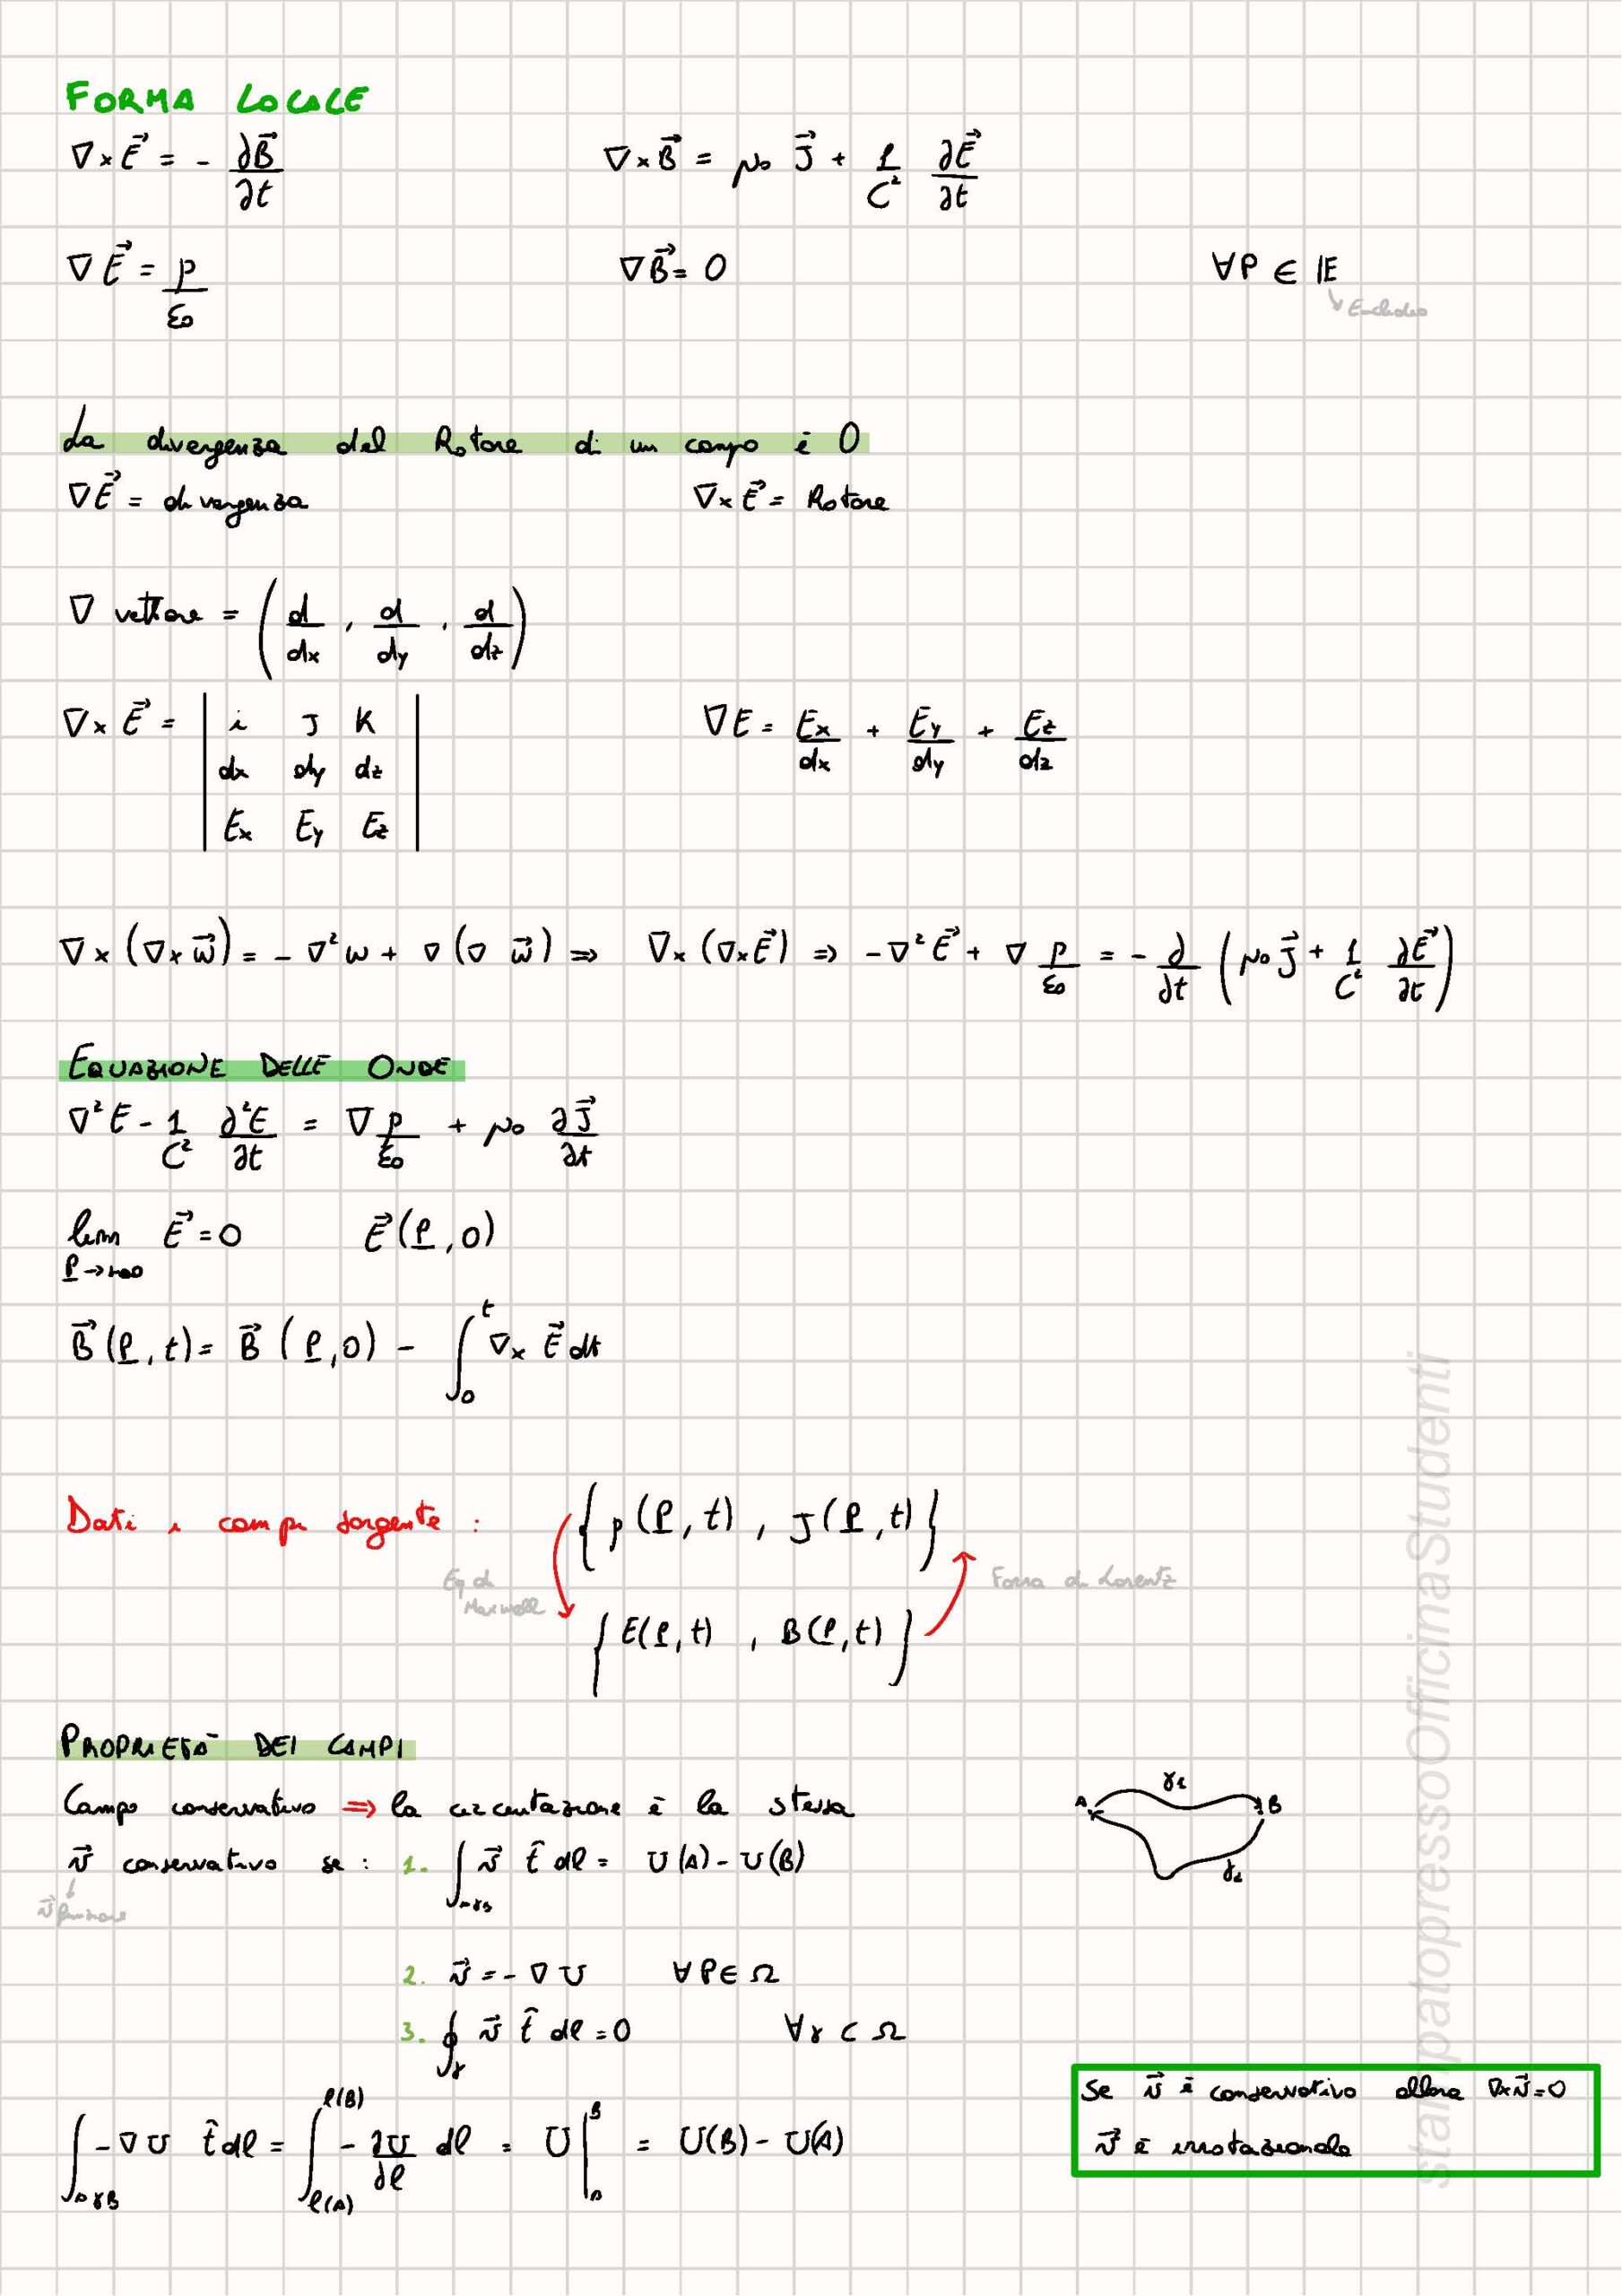 FORMA LOCALE
∇×E⃗ = - ∂B⃗/∂t    ∇×B⃗ = μ₀ J⃗ + 1/C² ∂E⃗/∂t
∇E⃗ = ρ/ε₀    ∇B⃗ = 0    ∀P ∈ 𝔼
Euclideo
La divergenza del Rotore di un campo è 0
∇E⃗ = divergenza    ∇×E⃗ = Rotore
∇ vettore = (d/dx , d/dy , d/dz)
∇×E⃗ = | i J K |    ∇E = Ex/dx + Ey/dy + Ez/dz
dx dy dz
Ex Ey Ez
∇×(∇×w⃗) = - ∇²w + ∇(∇ w⃗) ⇒ ∇×(∇×E⃗) ⇒ -∇²E⃗ + ∇ ρ/ε₀ = - ∂/∂t (μ₀ J⃗ + 1/C² ∂E⃗/∂t)
EQUAZIONE DELLE ONDE
∇²E - 1/C² ∂²E/∂t = ∇ρ/ε₀ + μ₀ ∂J⃗/∂t
lim E⃗ = 0    E⃗(P,0)
P→+∞
B⃗(P,t) = B⃗(P,0) - ∫₀ᵗ ∇×E⃗ dt
Dati i campi sorgente : {ρ(P,t) , J(P,t)}
Eq di Maxwell
Forza di Lorentz
{E(P,t) , B(P,t)}
PROPRIETÀ DEI CAMPI
Campo conservativo ⇒ la circuitazione è la stessa
v⃗ conservativo se : 1. ∫AγB v⃗ t̂ dl = U(A) - U(B)
v⃗ funzione
A γ1 B γ2
2. v⃗ = - ∇U    ∀P∈Ω
3. ∮γ v⃗ t̂ dl = 0    ∀γ ⊂ Ω
∫AγB -∇U t̂ dl = ∫l(A)l(B) - ∂U/∂l dl = U|AB = U(B) - U(A)
Se v⃗ è conservativo allora ∇×v⃗ = 0
v⃗ è irrotazionale
stampatopressoOfficinaStudenti